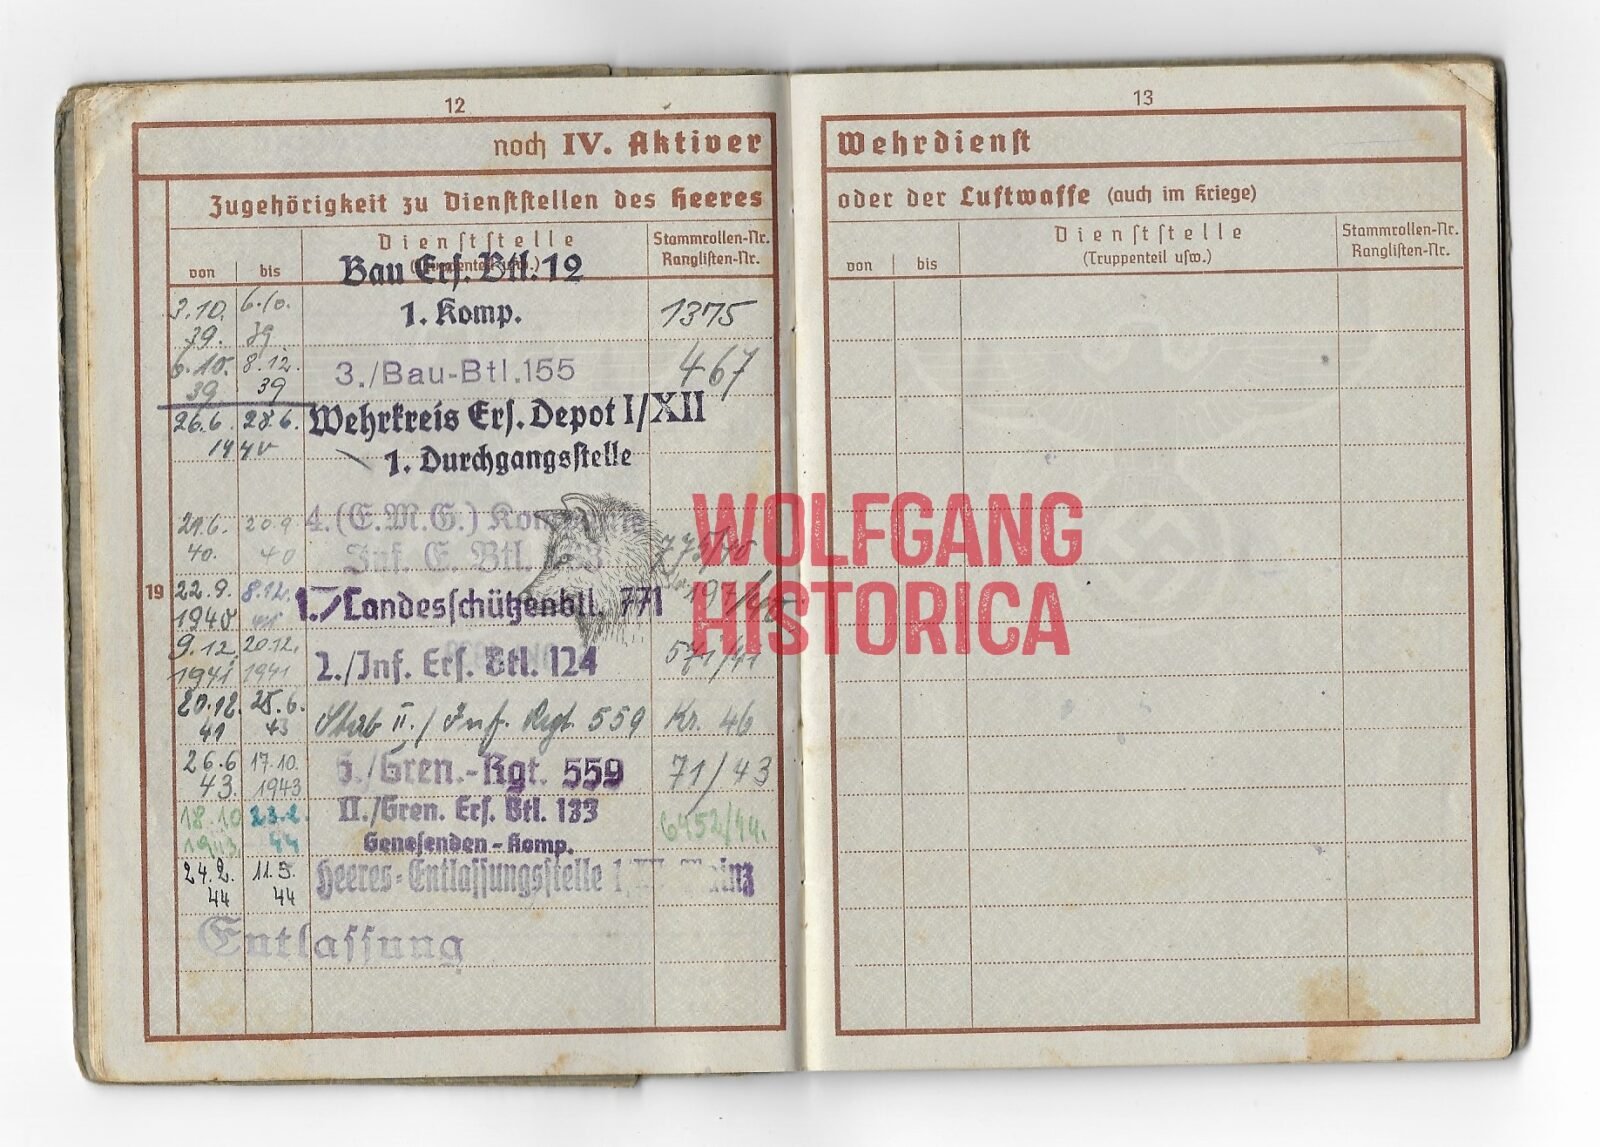 12
noch IV. Aktiver
Zugehörigkeit zu Dienststellen des Heeres
von bis
Dienststelle
(Truppenteil usw.)
Stammrollen-Nr.
Ranglisten-Nr.
Bau Ers. Btl. 12
3.10. 6.10. 1. Komp. 1375
39. 39.
6.10. 8.12. 3./Bau-Btl.155 467
39 39
26.6. 28.6. Wehrkreis Ers. Depot I/XII
1940 1. Durchgangsstelle
20.9 4. (E.M.G.)
40. 40 Inf. E. Btl.
19 22.9. 8.12. 1./Landesschützenbtl. 771
1940
9.12. 20.12. 2./Inf. Ers. Btl. 124 571/41
1941 1941
20.12. 25.6. Stab II./Inf. Rgt 559 Kr. 46
41 43
26.6 17.10. /Gren.-Rgt. 559 71/43
43. 1943
18.10 23.2. II./Gren. Ers. Btl. 133 6452/44.
1943. 44 Genesenden-Komp.
24.2. 11.5. Heeres-Entlassungsstelle
44 44
Entlassung
13
Wehrdienst
oder der Luftwaffe (auch im Kriege)
von bis
Dienststelle
(Truppenteil usw.)
Stammrollen-Nr.
Ranglisten-Nr.
WOLFGANG
HISTORICA